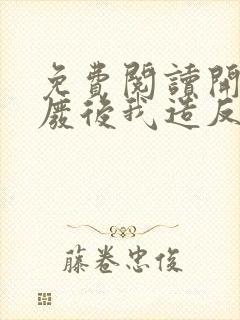 免費閱讀開
廠後我造反
藤卷忠俊